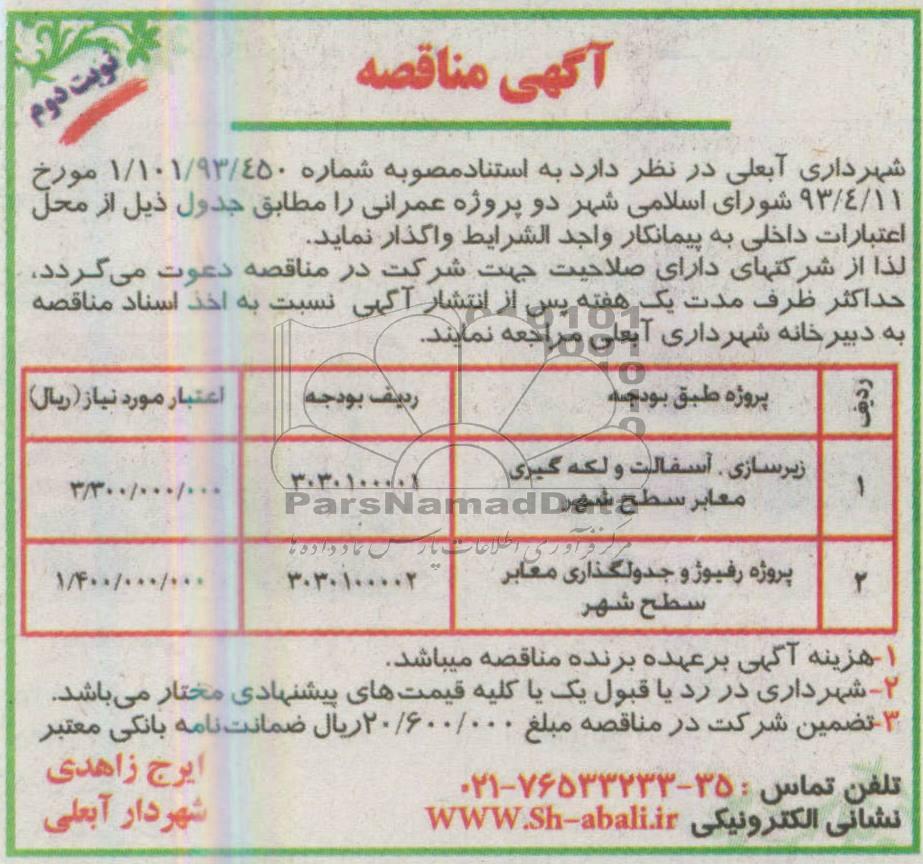 آگهی مناقصه
نوبت دوم
شهرداری آبعلی در نظر دارد به استنادمصوبه شماره ۱/۱۰۱/۹۳/٤۵۰ مورخ
۹۳/٤/۱۱ شورای اسلامی شهر دو پروژه عمرانی را مطابق جدول ذیل از محل
اعتبارات داخلی به پیمانکار واجد الشرایط واگذار نماید.
لذا از شرکتهای دارای صلاحیت جهت شرکت در مناقصه دعوت می‌گردد،
حداکثر ظرف مدت یک هفته پس از انتشار آگهی نسبت به اخذ اسناد مناقصه
به دبیرخانه شهرداری آبعلی مراجعه نمایند.
ردیف پروژه طبق بودجه ردیف بودجه اعتبار مورد نیاز (ریال)
۱ زیرسازی . آسفالت و لکه گیری معابر سطح شهر ۳۰۳۰۱۰۰۰۰۱ ۳/۳۰۰/۰۰۰/۰۰۰
ParsNamadData
مرکز فرآوری اطلاعات پارس نماد داده ها
۲ پروژه رفیوژ و جدولگذاری معابر سطح شهر ۳۰۳۰۱۰۰۰۰۲ ۱/۴۰۰/۰۰۰/۰۰۰
۱-هزینه آگهی برعهده برنده مناقصه میباشد.
۲-شهرداری در رد یا قبول یک یا کلیه قیمت‌های پیشنهادی مختار می‌باشد.
۳-تضمین شرکت در مناقصه مبلغ ۲۰/۶۰۰/۰۰۰ریال ضمانت‌نامه بانکی معتبر
تلفن تماس : ۳۵-۷۶۵۳۳۲۳۳-۰۲۱
نشانی الکترونیکی WWW.Sh-abali.ir
ایرج زاهدی
شهردار آبعلی